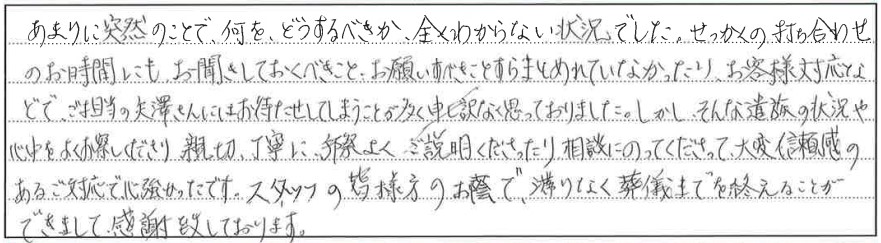 あまりに突然のことで、何を、どうするべきか、全くわからない状況でした。せっかくの打ち合わせ
のお時間にも、お聞きしておくべきこと、お願いすべきことすらまとめれていなかったり、お客様対応な
どで、ご担当の矢澤さんにはお待たせしてしまうことが多く申し訳なく思っておりました。しかし、そんな遺族の状況や
心中をよくお察しくださり 親切、丁寧に、手際よく ご説明くださったり 相談にのってくださって、大変信頼感の
あるご対応で心強かったです。スタッフの皆様方のお蔭で、滞りなく葬儀までを終えることが
できまして、感謝致しております。